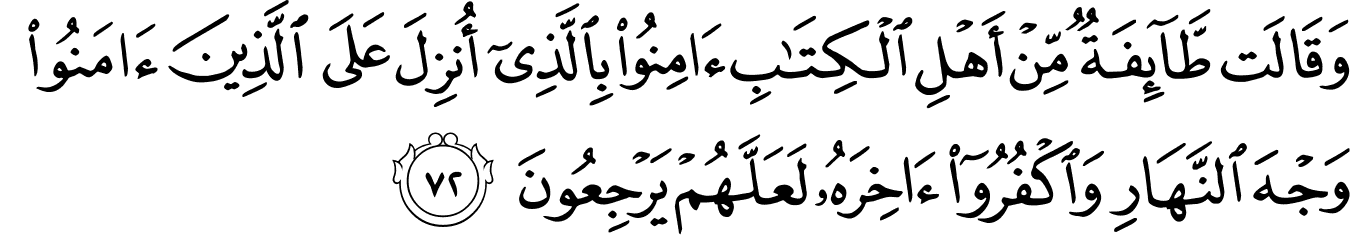 وَقَالَت طَّآئِفَةٌ مِّنْ أَهْلِ ٱلْكِتَـٰبِ ءَامِنُوا۟ بِٱلَّذِىٓ أُنزِلَ عَلَى ٱلَّذِينَ ءَامَنُوا۟
وَجْهَ ٱلنَّهَارِ وَٱكْفُرُوٓا۟ ءَاخِرَهُۥ لَعَلَّهُمْ يَرْجِعُونَ ٧٢